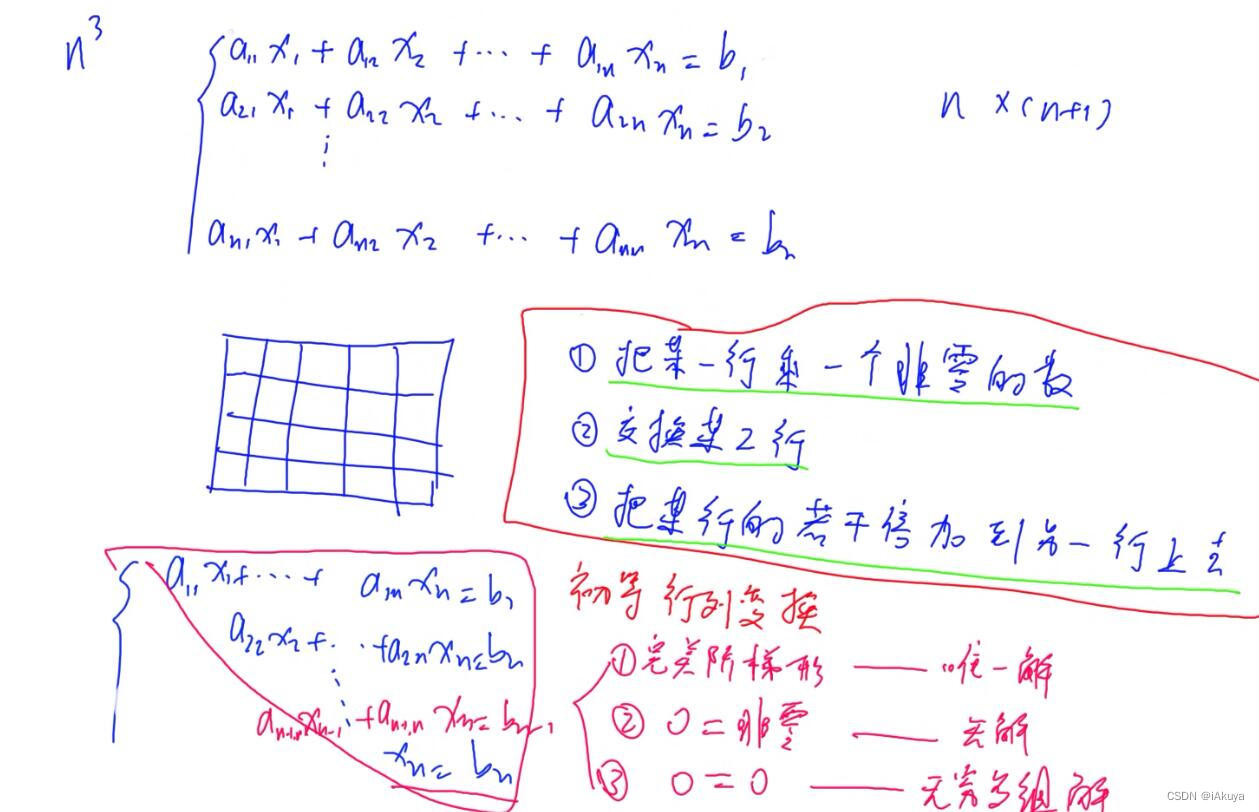 n³
a₁₁x₁ + a₁₂x₂ + ··· + a₁ₙxₙ = b₁
a₂₁x₁ + a₂₂x₂ + ··· + a₂ₙxₙ = b₂
n×(n+1)
⋮
aₙ₁x₁ + aₙ₂x₂ + ··· + aₙₙxₙ = bₙ
① 把某一行乘一个非零的数
② 交换某2行
③ 把某行的若干倍加到另一行上去
初等行列变换
a₁₁x₁+··· + a₁ₙxₙ = b₁
a₂₂x₂+··· +a₂ₙxₙ=bₙ
⋮
aₙ₋₁,ₙ₋₁xₙ₋₁ +aₙ₋₁,ₙ xₙ= bₙ₋₁
xₙ= bₙ
① 完美阶梯形 —— 唯一解
② 0 = 非零 —— 无解
③ 0 = 0 —— 无穷多组解
CSDN @iAkuya